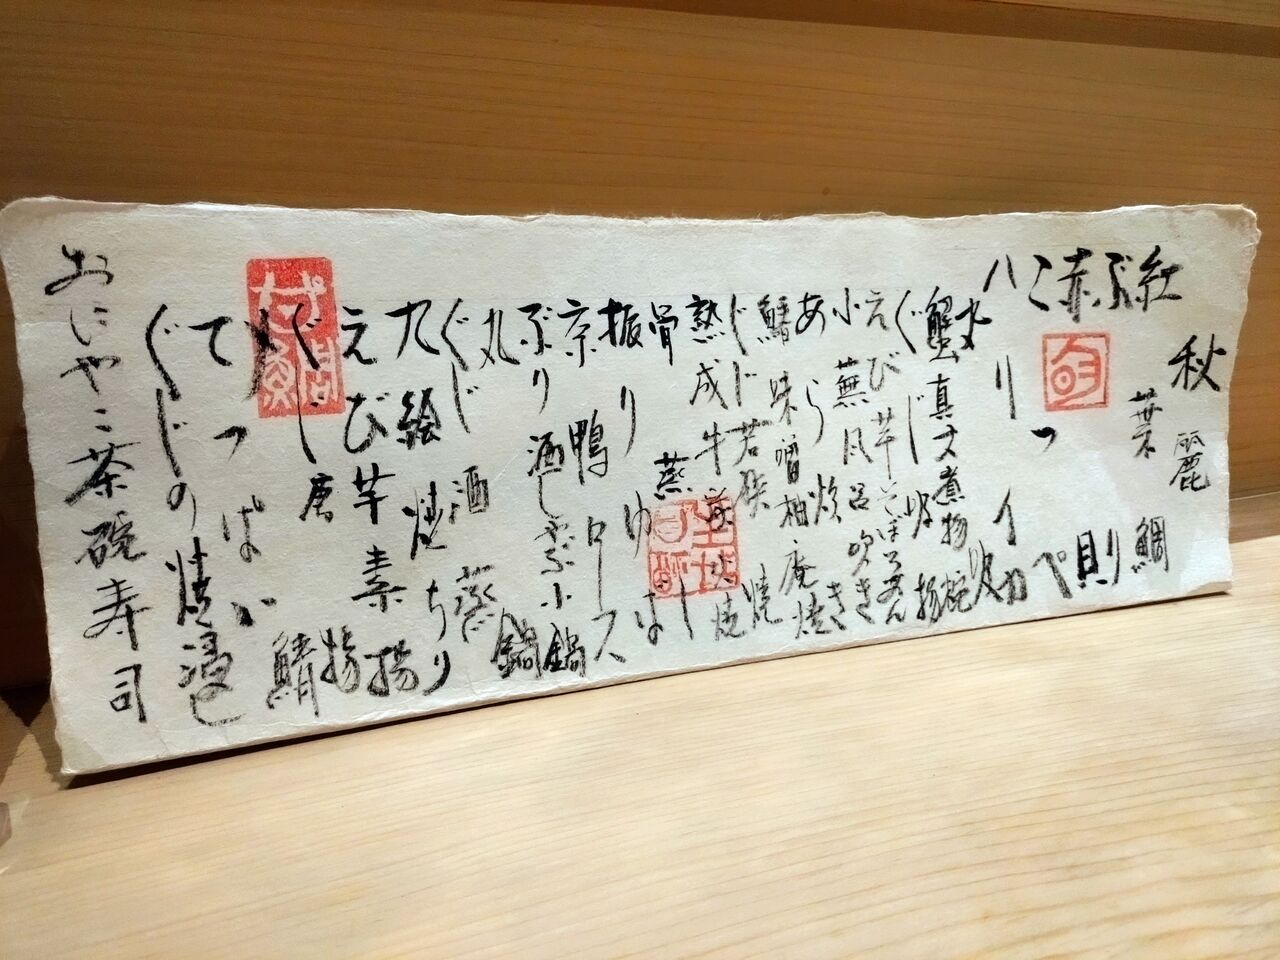 秋麗
紅葉鯛
ぶり
赤貝
こっぺ
ハリイカ
丸吸
蟹真丈煮物椀
ぐじ 吸 揚
えび芋そぼろあん
小蕪風呂吹き
あら炊き
鰆味噌柚庵焼
ぐじ若狭焼
熟成牛炭火焼
骨蒸し
振りゆば
京鴨ロース
ぶり酒しゃぶ小鍋
丸鍋
ぐじ酒蒸
九絵焼ちり
えび芋素揚
ぐじ唐揚
鯖
てっぱい
ぐじの焼浸し
おにやこ茶碗寿司